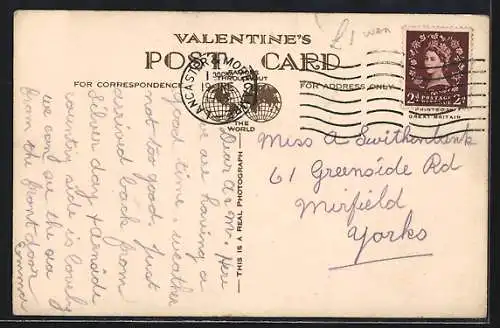 VALENTINE'S
£1
POST CARD
FAMOUS
THROUGHOUT
FOR CORRESPONDENCE
FOR ADDRESS ONLY
THE
WORLD
POSTAGE
2D 2D
PRINTED IN
GREAT BRITAIN
THIS IS A REAL PHOTOGRAPH
Dear Mr. Here
we are having a
good time, weather
not too good. Just
arrived back from
Silver day &
water side is lovely
we can see the sea
from the front door
Emma
Miss A Swithenbank
61 Greenside Rd
Mirfield
Yorks